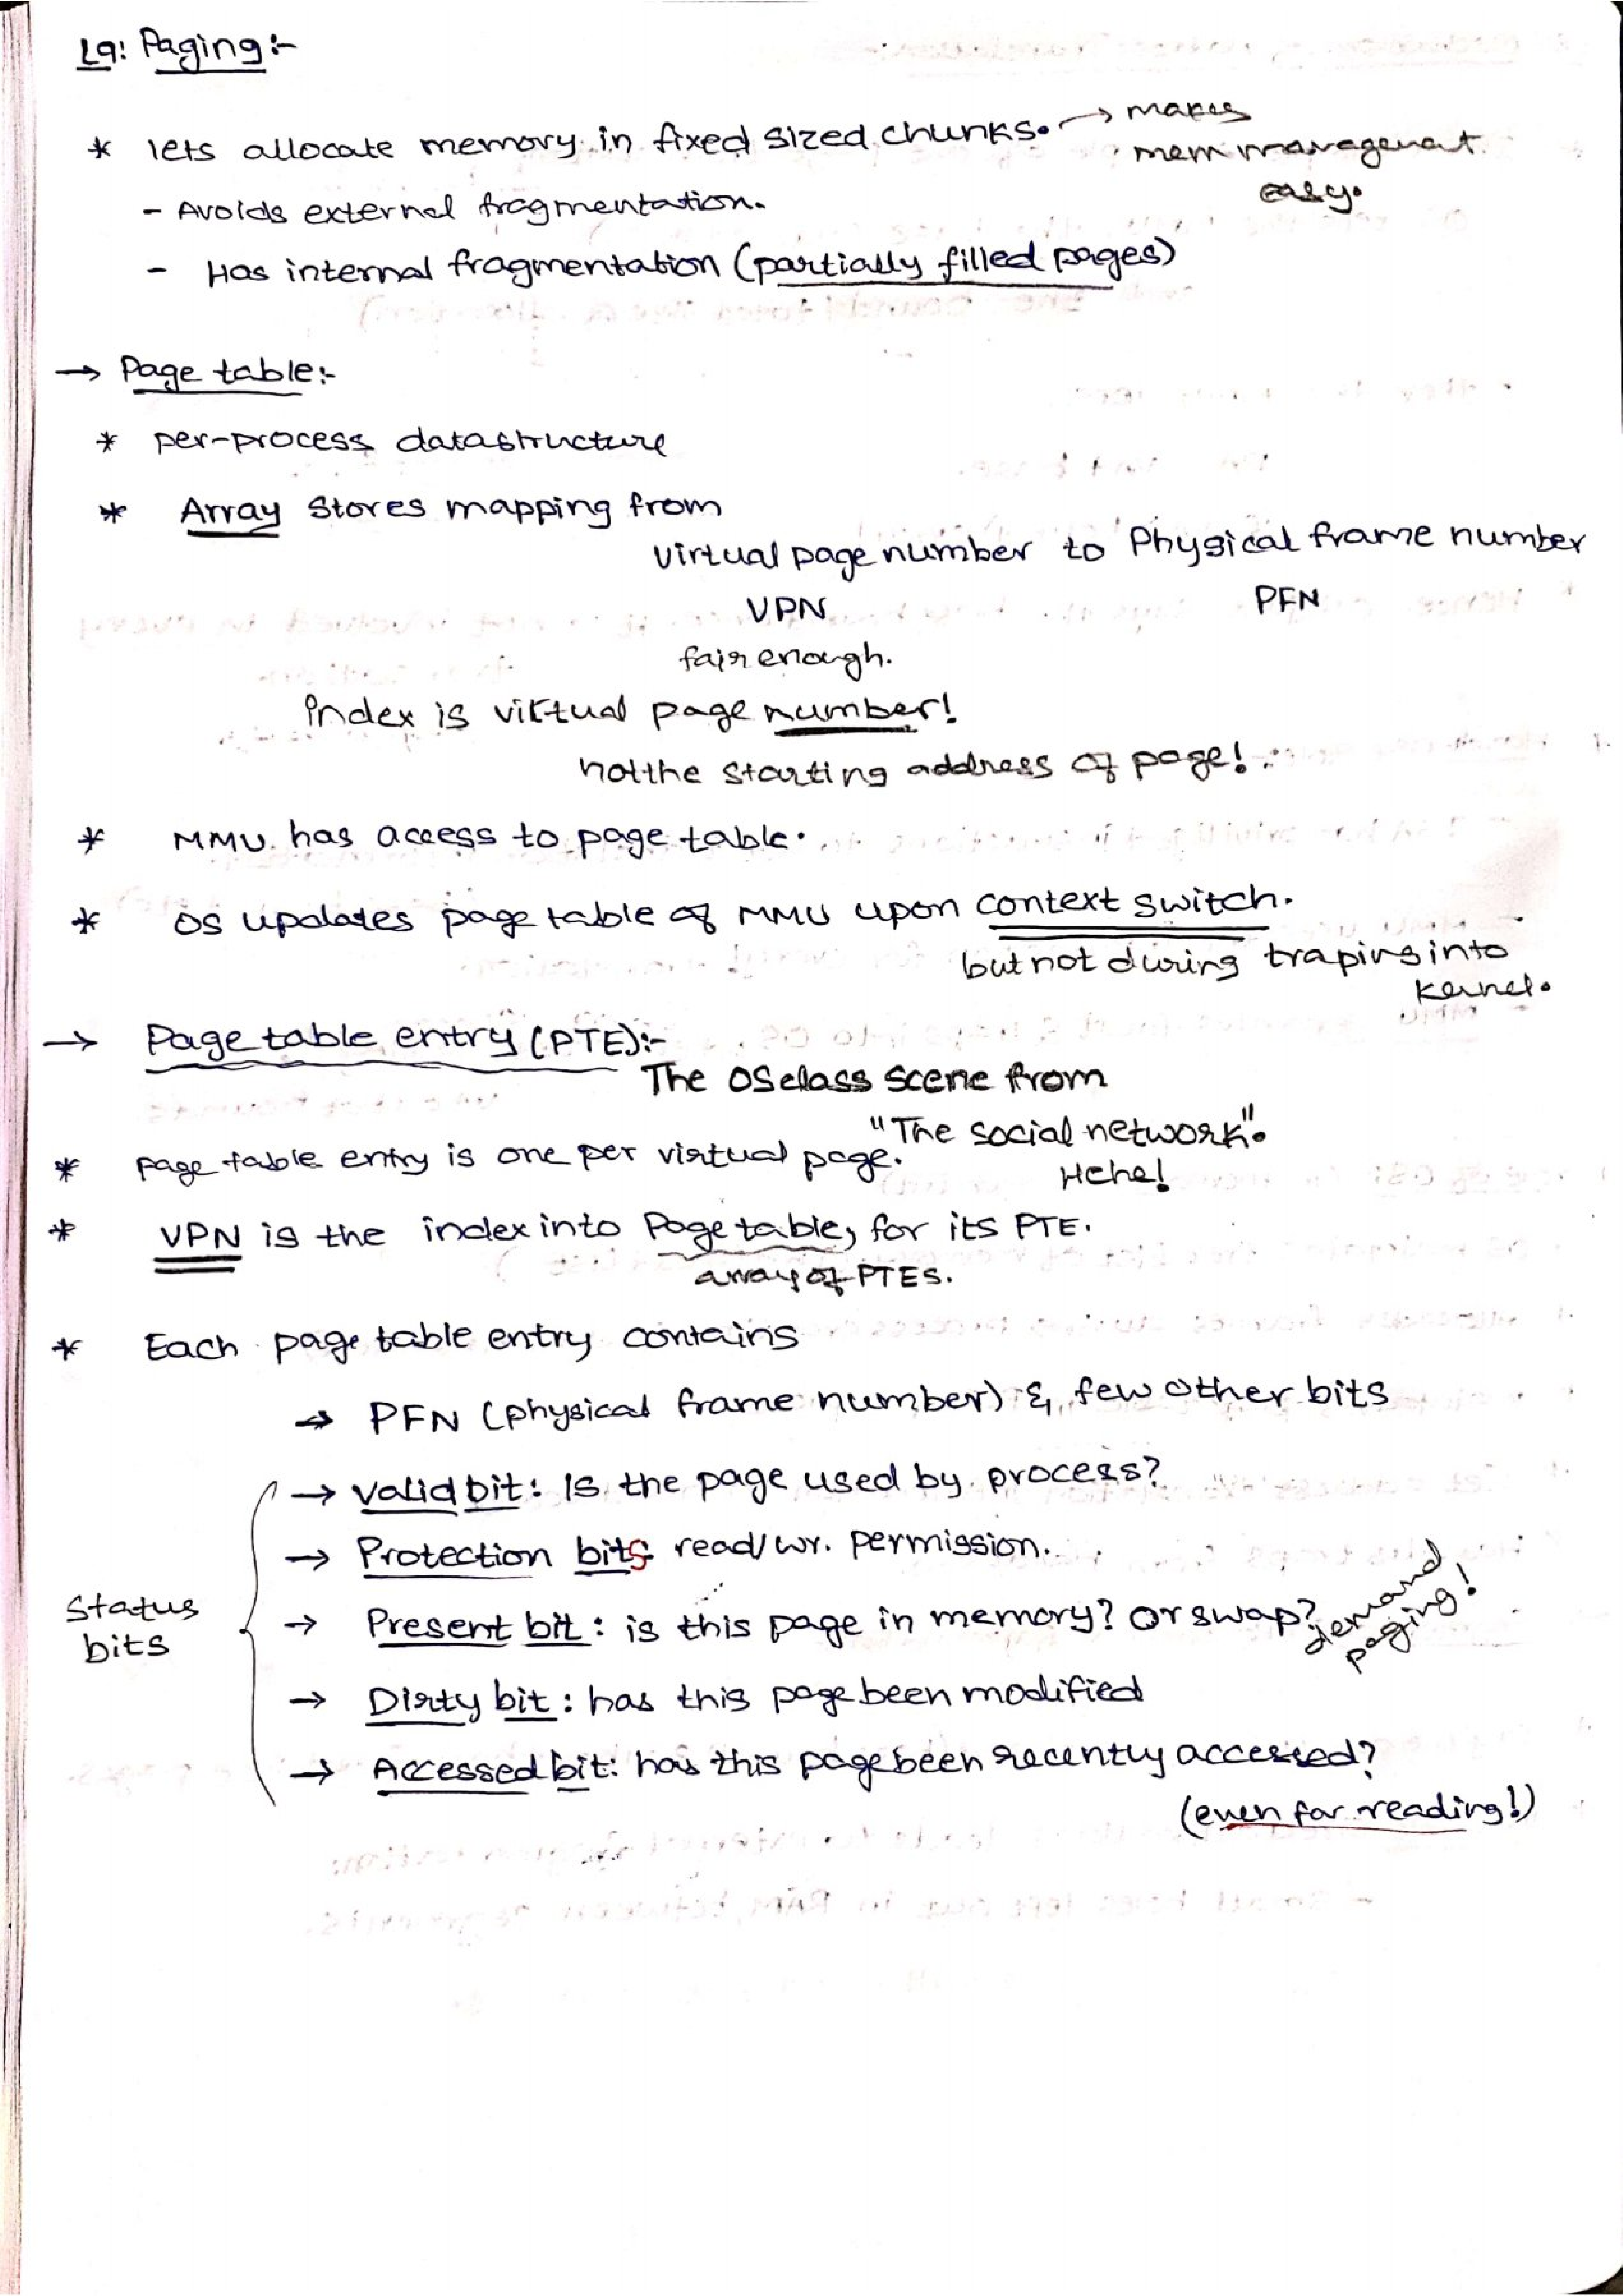 L9: Paging:-
* lets allocate memory in fixed sized chunks. → makes
mem management
easy.
- Avoids external fragmentation.
- Has internal fragmentation (partially filled pages)
→ Page table:-
* per-process datastructure
* Array stores mapping from
virtual page number to Physical frame number
VPN PFN
fair enough.
index is virtual page number!
not the starting address of page!
* MMU has access to page table.
* OS updates page table of MMU upon context switch.
but not during traping into
kernel.
→ Page table entry (PTE):-
The OS class scene from
"The social network".
Hehe!
* page table entry is one per virtual page.
* VPN is the index into Page table, for its PTE.
array of PTES.
* Each page table entry contains
→ PFN (physical frame number) & few other bits
→ valid bit: Is the page used by process?
→ Protection bits read/wr. permission.
Status
bits
→ Present bit: is this page in memory? Or swap? demand
paging!
→ Dirty bit: has this page been modified
→ Accessed bit: has this page been recently accessed?
(even for reading!)